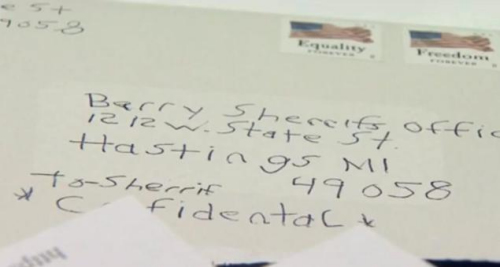 e St
9058
Equality
FOREVER
Freedom
FOREVER
Barry Sherrifs Offic
1212 W. State St.
Hastings MI
49058
To-Sherrif
* C fidental *